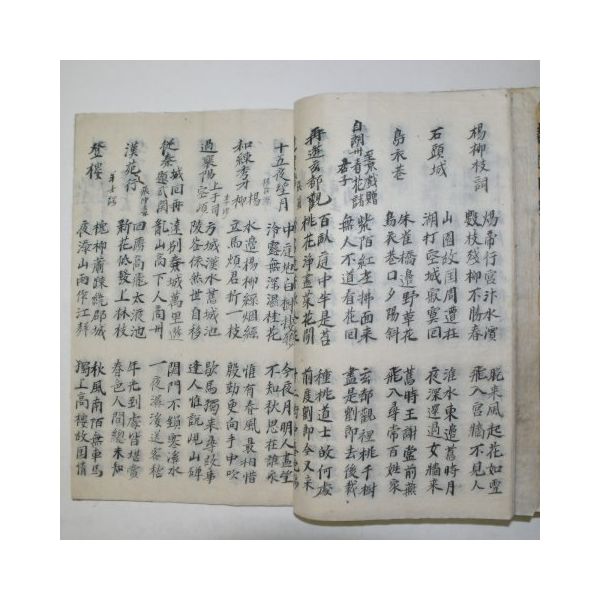 楊柳枝詞
煬帝行宮汴水濱 晩來風起花如雪
數枝殘柳不勝春 飛入宮牆不見人
石頭城
山圍故国周遭在 淮水東邊舊時月
潮打空城寂寞回 夜深還過女牆來
烏衣巷
朱雀橋邊野草花 舊時王謝堂前燕
烏衣巷口夕陽斜 飛入尋常百姓家
自朗州至京戲贈看花諸君子
紫陌紅塵拂面來 玄都觀裡桃千樹
無人不道看花回 盡是劉郎去後栽
再遊玄都觀
百畝庭中半是苔 種桃道士故何處
桃花淨盡菜花開 前度劉郎今又來
十五夜望月
中庭地白樹棲鴉 今夜月明人盡望
冷露無聲濕桂花 不知秋思在誰家
和練秀才楊柳
水邊楊柳綠烟絲 惟有春風最相惜
立馬煩君折一枝 殷勤更向手中吹
過襄陽上于司空頔
方城漢水舊城池 歇馬獨來尋故事
陵谷依然世自移 逢人惟說峴山碑
從秦城回再題武關
遠別秦城萬里遊 關門不鎖寒溪水
亂山高下入商州 一夜潺湲送客愁
漢苑行 張仲素
回鴈高飛太液池 年光到處皆堪賞
新花低發上林枝 春色人間總未知
登樓 羊士諤
槐柳蕭疎繞郡城 秋風南陌無車馬
夜添山雨作江聲 獨上高樓故國情